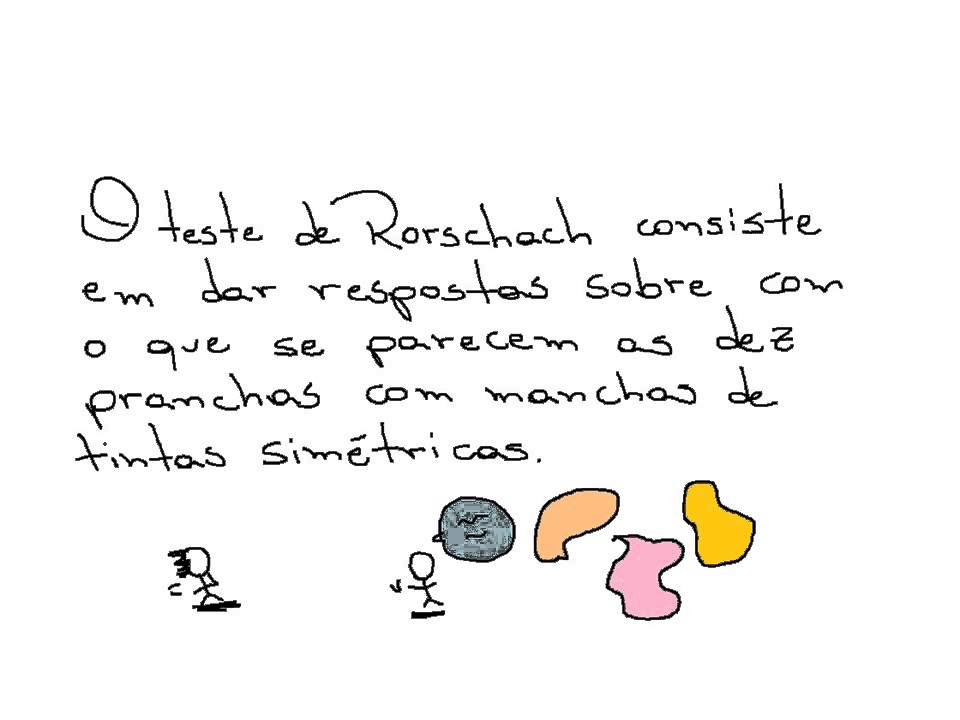 O teste de Rorschach consiste
em dar respostas sobre com
o que se parecem as dez
pranchas com manchas de
tintas simétricas.